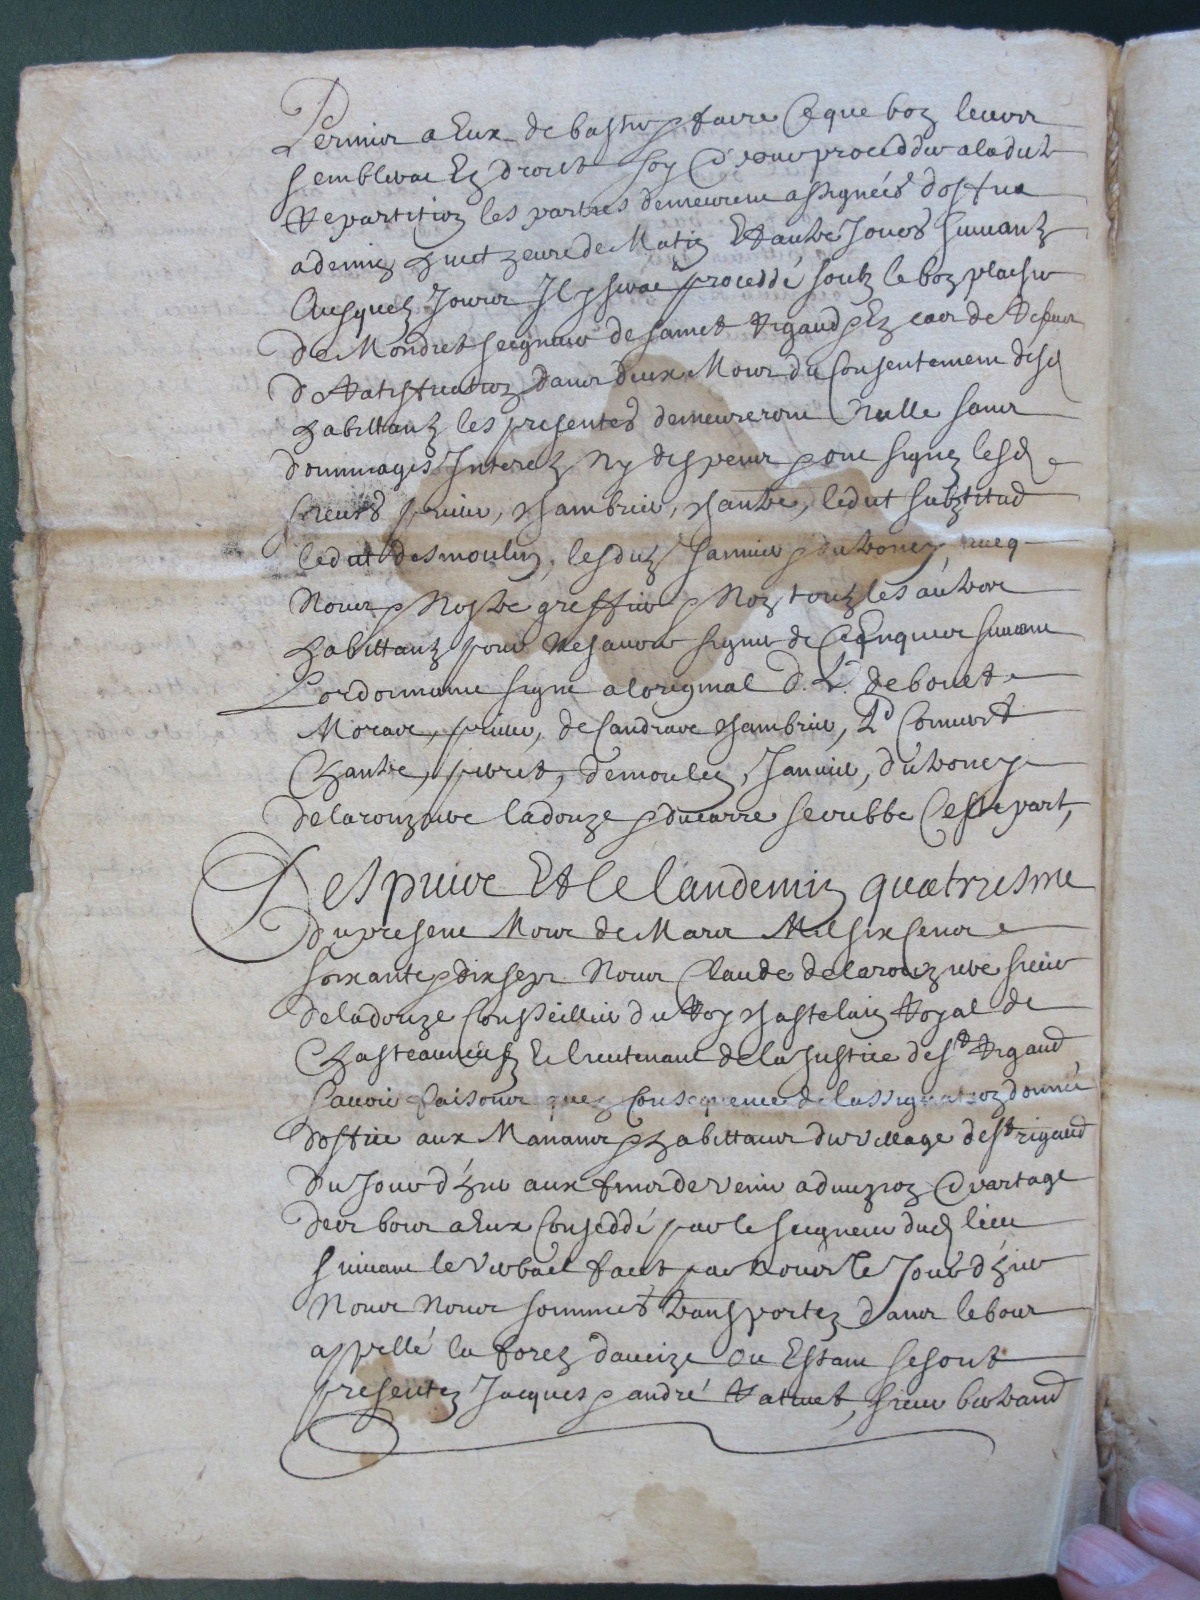 Permier a Eux de bastir & faire Ce que bon leurs
semblerae En droict soy Et pour procedder a ladicte
Repartition les parties demeurent assignées d'office
a demin huict heure de Matin Et autre Jours suivantz
Ausquelz Jours Il y serae procedde soubz le bon plaisir
De Mondict seigneur de sainct Rigaud & En cas de Refus
De Ratiffication dans deux Mois du Consentement desd
habittantz les presentes demeureront Nulle sans
dommages Interez Ny despens & ont signez lesd
sieurs prieur, chambrier, chantre, ledict substitud
ledict desmoulin, lesditz Janvier & duboney avecq
Nous & Nostre greffier & Non tous les autre
habittantz pour Ne sauoir signer de Ce Enquis suivant
L'ordonnance signe a loriginal D. L. de bouet
Morace, prieur, de Candrace chambrier, Comuert
Chantre, perret, demoulin, Janvier, duboney
delaronziere ladouze & ducarre scribbe Ceste part,
Despuive Et le landemin quatriesme
du present Mois de Mars Mil six sens
soixante & dix sept Nous Claude delaronziere sieur
de ladouze Conseillier du Roy chastelain Royal de
Chasteauneuf Et lieutenant de la Justice de st Rigaud
sauoir faisons quen Consequence de lassignation donnée
d'office aux Manans & habittans du village de st rigaud
du Jour d'hier aux fins de venir a diuizion Et partage
des bois a Eux Conseddé par le seigneur dud lieu
suivant le verbail faict par Nous le Jour d'hier
Nous Nous sommes transportez dans le bois
appellé la forez d'aveize ou Estant se sont
presentez Jacques & andré Vatinet, sieur bertrand